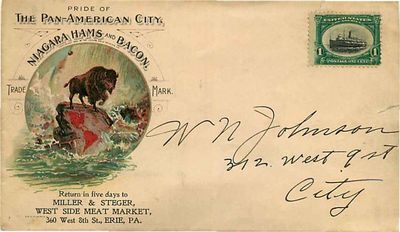 PRIDE OF
THE PAN-AMERICAN CITY,
NIAGARA HAMS AND BACON.
TRADE MARK.
UNITED STATES
1 1
POSTAGE ONE CENT
W N Johnson
312 West 9 st
City
Return in five days to
MILLER & STEGER,
WEST SIDE MEAT MARKET,
360 West 8th St., ERIE, PA.